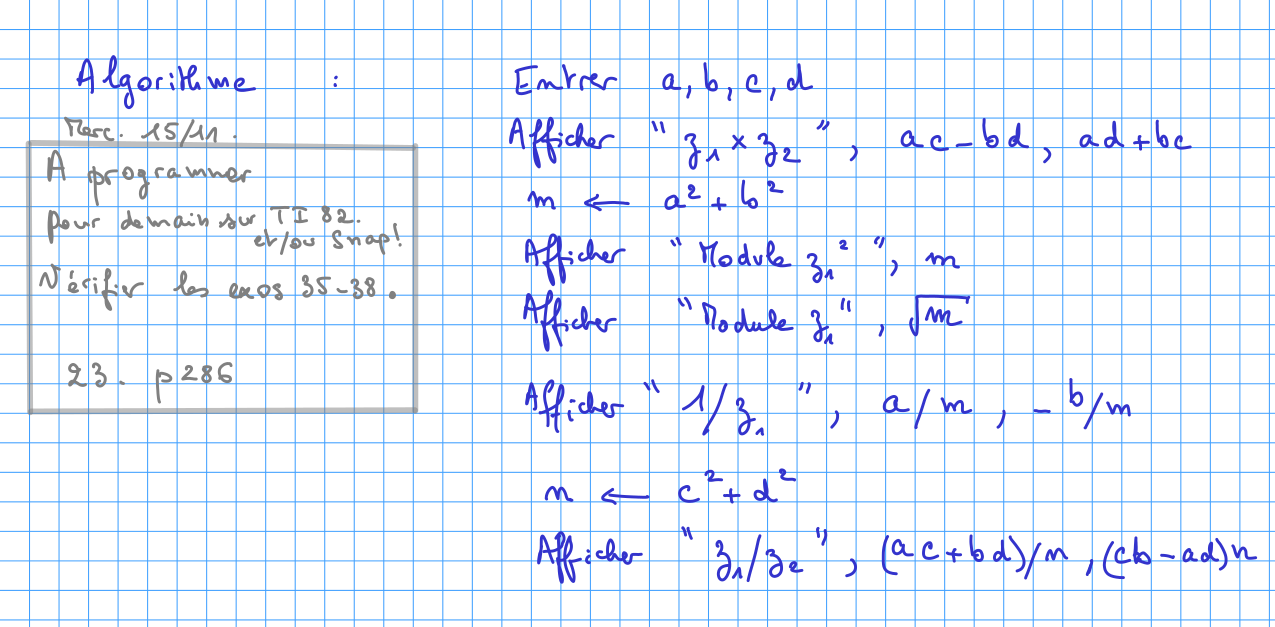 Algorithme :
Merc. 15/11.
A programmer
pour demain sur TI 82.
et/ou Snap!
Vérifier les exos 35-38.
23. p286
Entrer a, b, c, d
Afficher " z₁ × z₂ ", ac - bd, ad + bc
m ← a² + b²
Afficher " Module z₁² ", m
Afficher " Module z₁ ", √m
Afficher " 1/z₁ ", a/m, - b/m
n ← c² + d²
Afficher " z₁/z₂ ", (ac + bd)/n, (cb - ad)n